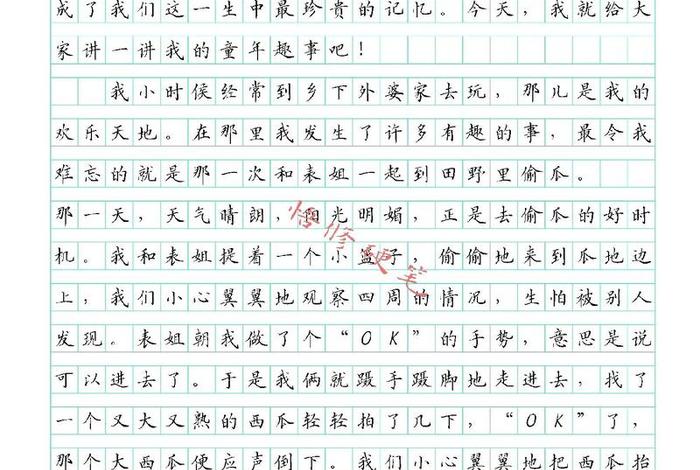 成了我们这一生中最珍贵的记忆。今天，我就给大
家讲一讲我的童年趣事吧！
我小时侯经常到乡下外婆家去玩，那儿是我的
欢乐天地。在那里我发生了许多有趣的事，最令我
难忘的就是那一次和表姐一起到田野里偷瓜。
那一天，天气晴朗，阳光明媚，正是去偷瓜的好时
机。我和表姐提着一个小篮子，偷偷地来到瓜地边
上，我们小心翼翼地观察四周的情况，生怕被别人
发现。表姐朝我做了个“OK”的手势，意思是说
可以进去了。于是我俩就蹑手蹑脚地走进去，找了
一个又大又熟的西瓜轻轻拍了几下，“OK”了，
那个大西瓜便应声倒下。我们小心翼翼地把西瓜抬
悟修硬笔